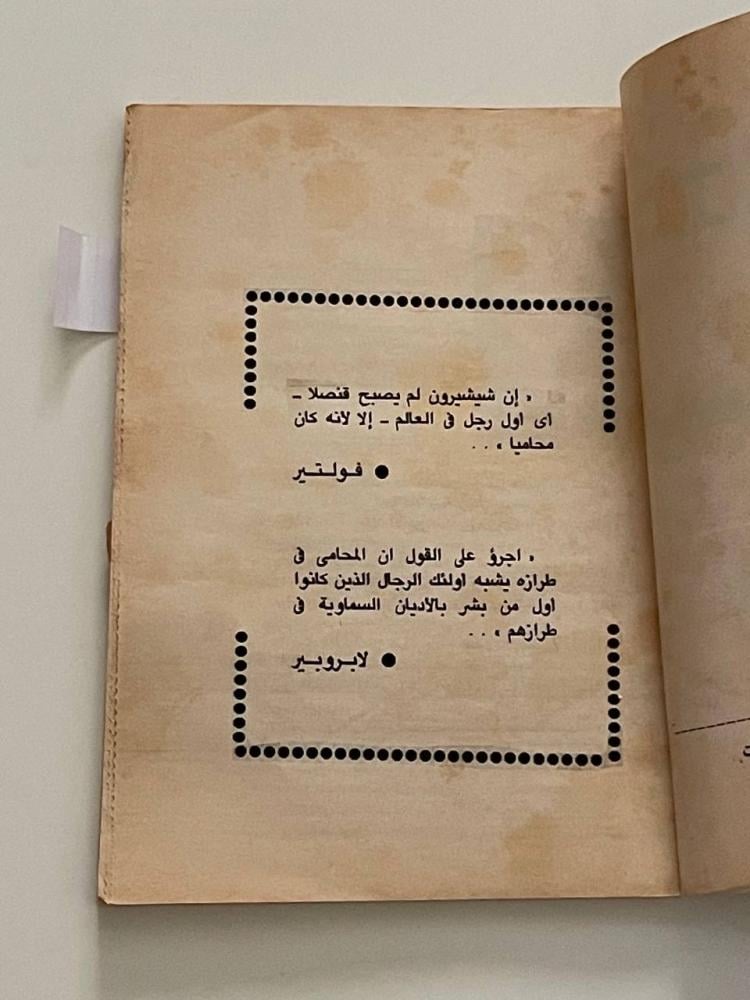 « إن شيشيرون لم يصبح قنصلا –
أى أول رجل فى العالم – إلا لانه كان
محاميا » . .
● فـولـتـير
« اجرؤ على القول ان المحامى فى
طرازه يشبه اولئك الرجال الذين كانوا
اول من بشر بالاديان السماوية فى
طرازهم » . .
● لابـرويـير